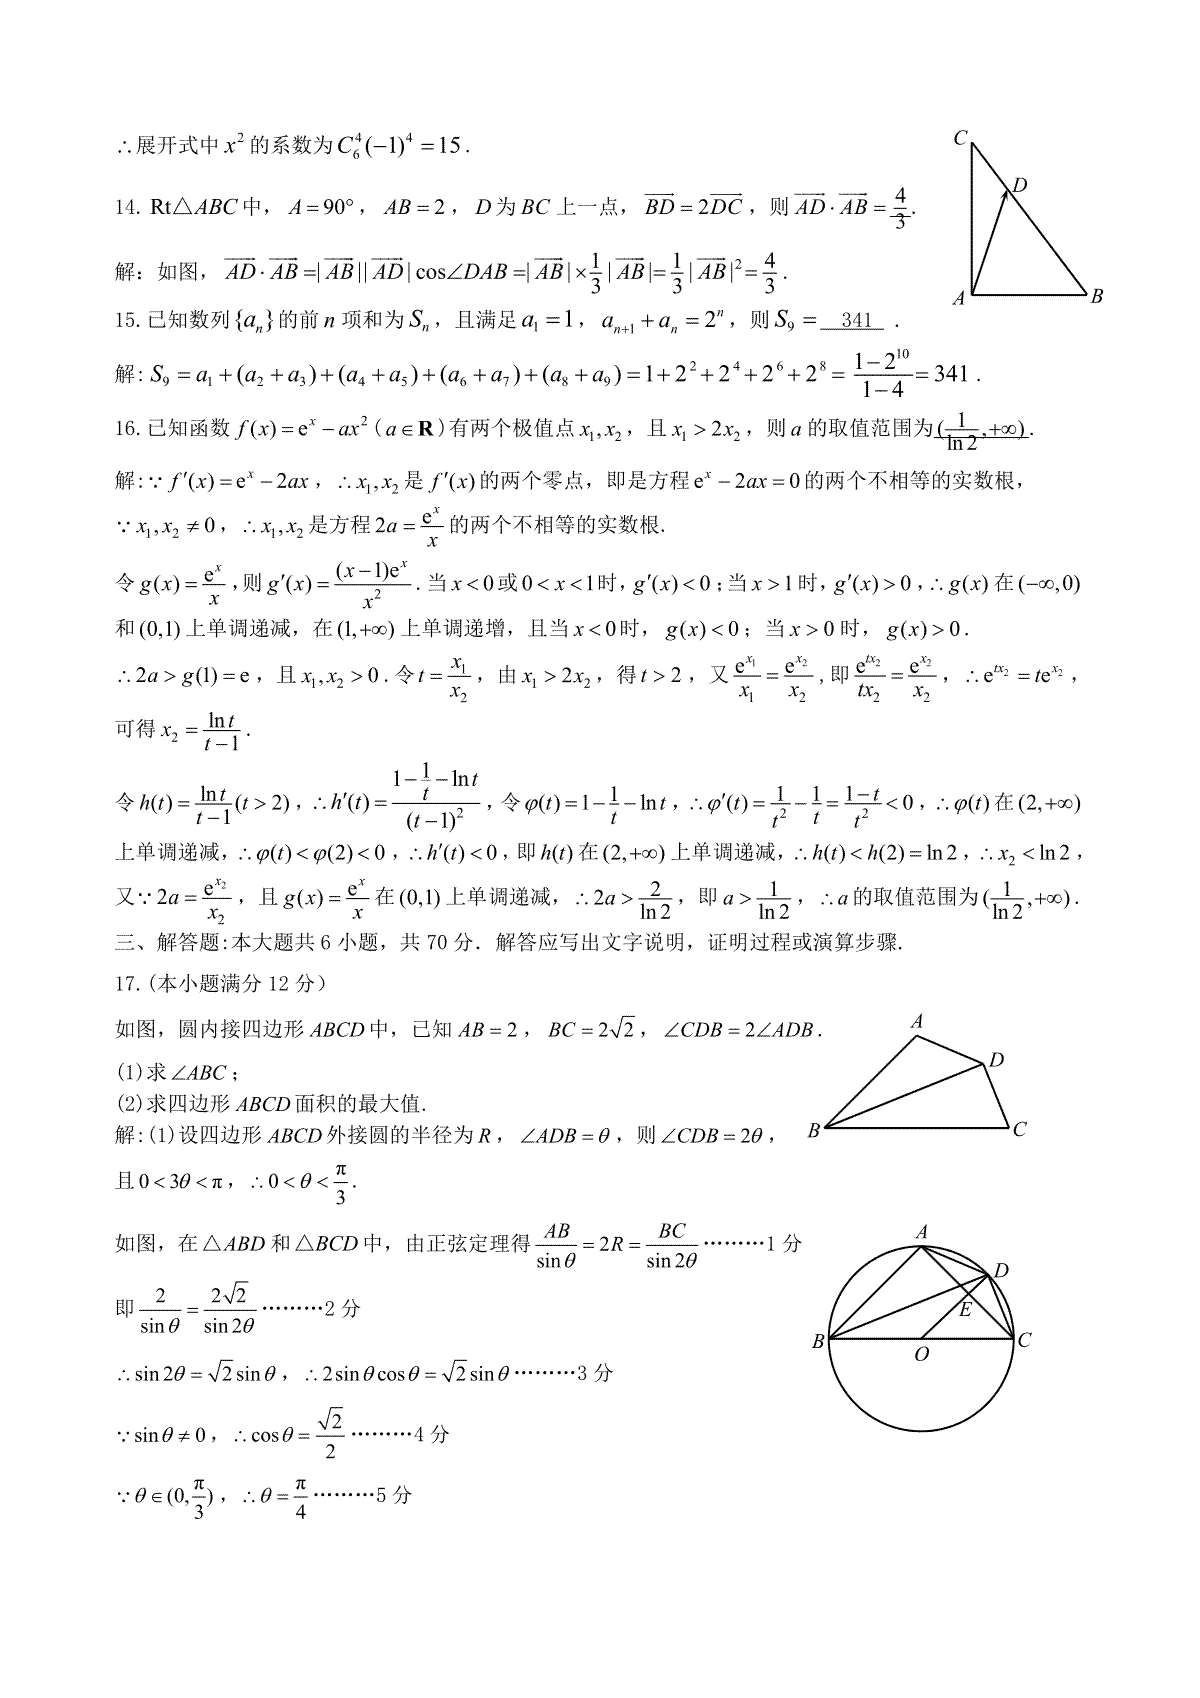 ∴展开式中 x² 的系数为 C₆⁴(−1)⁴ = 15．
14. Rt△ABC 中， A = 90°， AB = 2， D 为 BC 上一点， \overrightarrow{BD} = 2\overrightarrow{DC}，则 \overrightarrow{AD}·\overrightarrow{AB} = \frac{4}{3}．
解：如图， \overrightarrow{AD}·\overrightarrow{AB} =|\overrightarrow{AB}||\overrightarrow{AD}|cos∠DAB =|\overrightarrow{AB}|×\frac{1}{3}|\overrightarrow{AB}|= \frac{1}{3}|\overrightarrow{AB}|² = \frac{4}{3}．
C
D
A
B
15.已知数列{aₙ}的前 n 项和为 Sₙ，且满足 a₁ = 1， aₙ₊₁ + aₙ = 2ⁿ，则 S₉ = 341 ．
解: S₉ = a₁ + (a₂ + a₃) + (a₄ + a₅) + (a₆ + a₇) + (a₈ + a₉) = 1 + 2² + 2⁴ + 2⁶ + 2⁸ = \frac{1−2¹⁰}{1−4} = 341．
16.已知函数 f(x) = eˣ − ax² ( a∈R )有两个极值点 x₁, x₂，且 x₁ > 2x₂，则 a 的取值范围为 (\frac{1}{ln 2}, +∞)．
解:∵ f′(x) = eˣ − 2ax，∴x₁, x₂ 是 f′(x) 的两个零点，即是方程 eˣ − 2ax = 0 的两个不相等的实数根，
∵ x₁, x₂ ≠ 0，∴x₁, x₂ 是方程 2a = \frac{eˣ}{x} 的两个不相等的实数根.
令 g(x) = \frac{eˣ}{x}，则 g′(x) = \frac{(x−1)eˣ}{x²}．当 x < 0 或 0 < x < 1 时，g′(x) < 0；当 x > 1 时，g′(x) > 0，∴g(x) 在 (−∞,0)
和 (0,1) 上单调递减，在 (1,+∞) 上单调递增，且当 x < 0 时， g(x) < 0；当 x > 0 时， g(x) > 0．
∴2a > g(1) = e，且 x₁, x₂ > 0．令 t = \frac{x₁}{x₂}，由 x₁ > 2x₂，得 t > 2，又 \frac{e^{x₁}}{x₁} = \frac{e^{x₂}}{x₂}，即 \frac{e^{tx₂}}{tx₂} = \frac{e^{x₂}}{x₂}，∴e^{tx₂} = te^{x₂}，
可得 x₂ = \frac{ln t}{t−1}．
令 h(t) = \frac{ln t}{t−1}(t > 2)，∴h′(t) = \frac{1−\frac{1}{t}−ln t}{(t−1)²}，令 φ(t) = 1−\frac{1}{t}−ln t，∴φ′(t) = \frac{1}{t²}−\frac{1}{t} = \frac{1−t}{t²} < 0，∴φ(t) 在 (2,+∞)
上单调递减，∴φ(t) < φ(2) < 0，∴h′(t) < 0，即 h(t) 在 (2,+∞) 上单调递减，∴h(t) < h(2) = ln 2，∴x₂ < ln 2，
又∵ 2a = \frac{e^{x₂}}{x₂}，且 g(x) = \frac{eˣ}{x} 在 (0,1) 上单调递减，∴2a > \frac{2}{ln 2}，即 a > \frac{1}{ln 2}，∴a 的取值范围为 (\frac{1}{ln 2}, +∞)．
三、解答题:本大题共 6 小题，共 70 分．解答应写出文字说明，证明过程或演算步骤.
17.(本小题满分 12 分）
如图，圆内接四边形 ABCD 中，已知 AB = 2， BC = 2√2， ∠CDB = 2∠ADB．
(1)求∠ABC；
(2)求四边形 ABCD 面积的最大值.
A
D
B
C
解:(1)设四边形 ABCD 外接圆的半径为 R， ∠ADB = θ，则∠CDB = 2θ，
且 0 < 3θ < π，∴0 < θ < \frac{π}{3}．
如图，在△ABD 和△BCD 中，由正弦定理得 \frac{AB}{sin θ} = 2R = \frac{BC}{sin 2θ} ………1 分
即 \frac{2}{sin θ} = \frac{2√2}{sin 2θ} ………2 分
∴sin 2θ = √2 sin θ，∴2sin θ cos θ = √2 sin θ ………3 分
∵sin θ ≠ 0，∴cos θ = \frac{√2}{2} ………4 分
∵θ∈(0, \frac{π}{3})，∴θ = \frac{π}{4} ………5 分
A
D
E
B
O
C